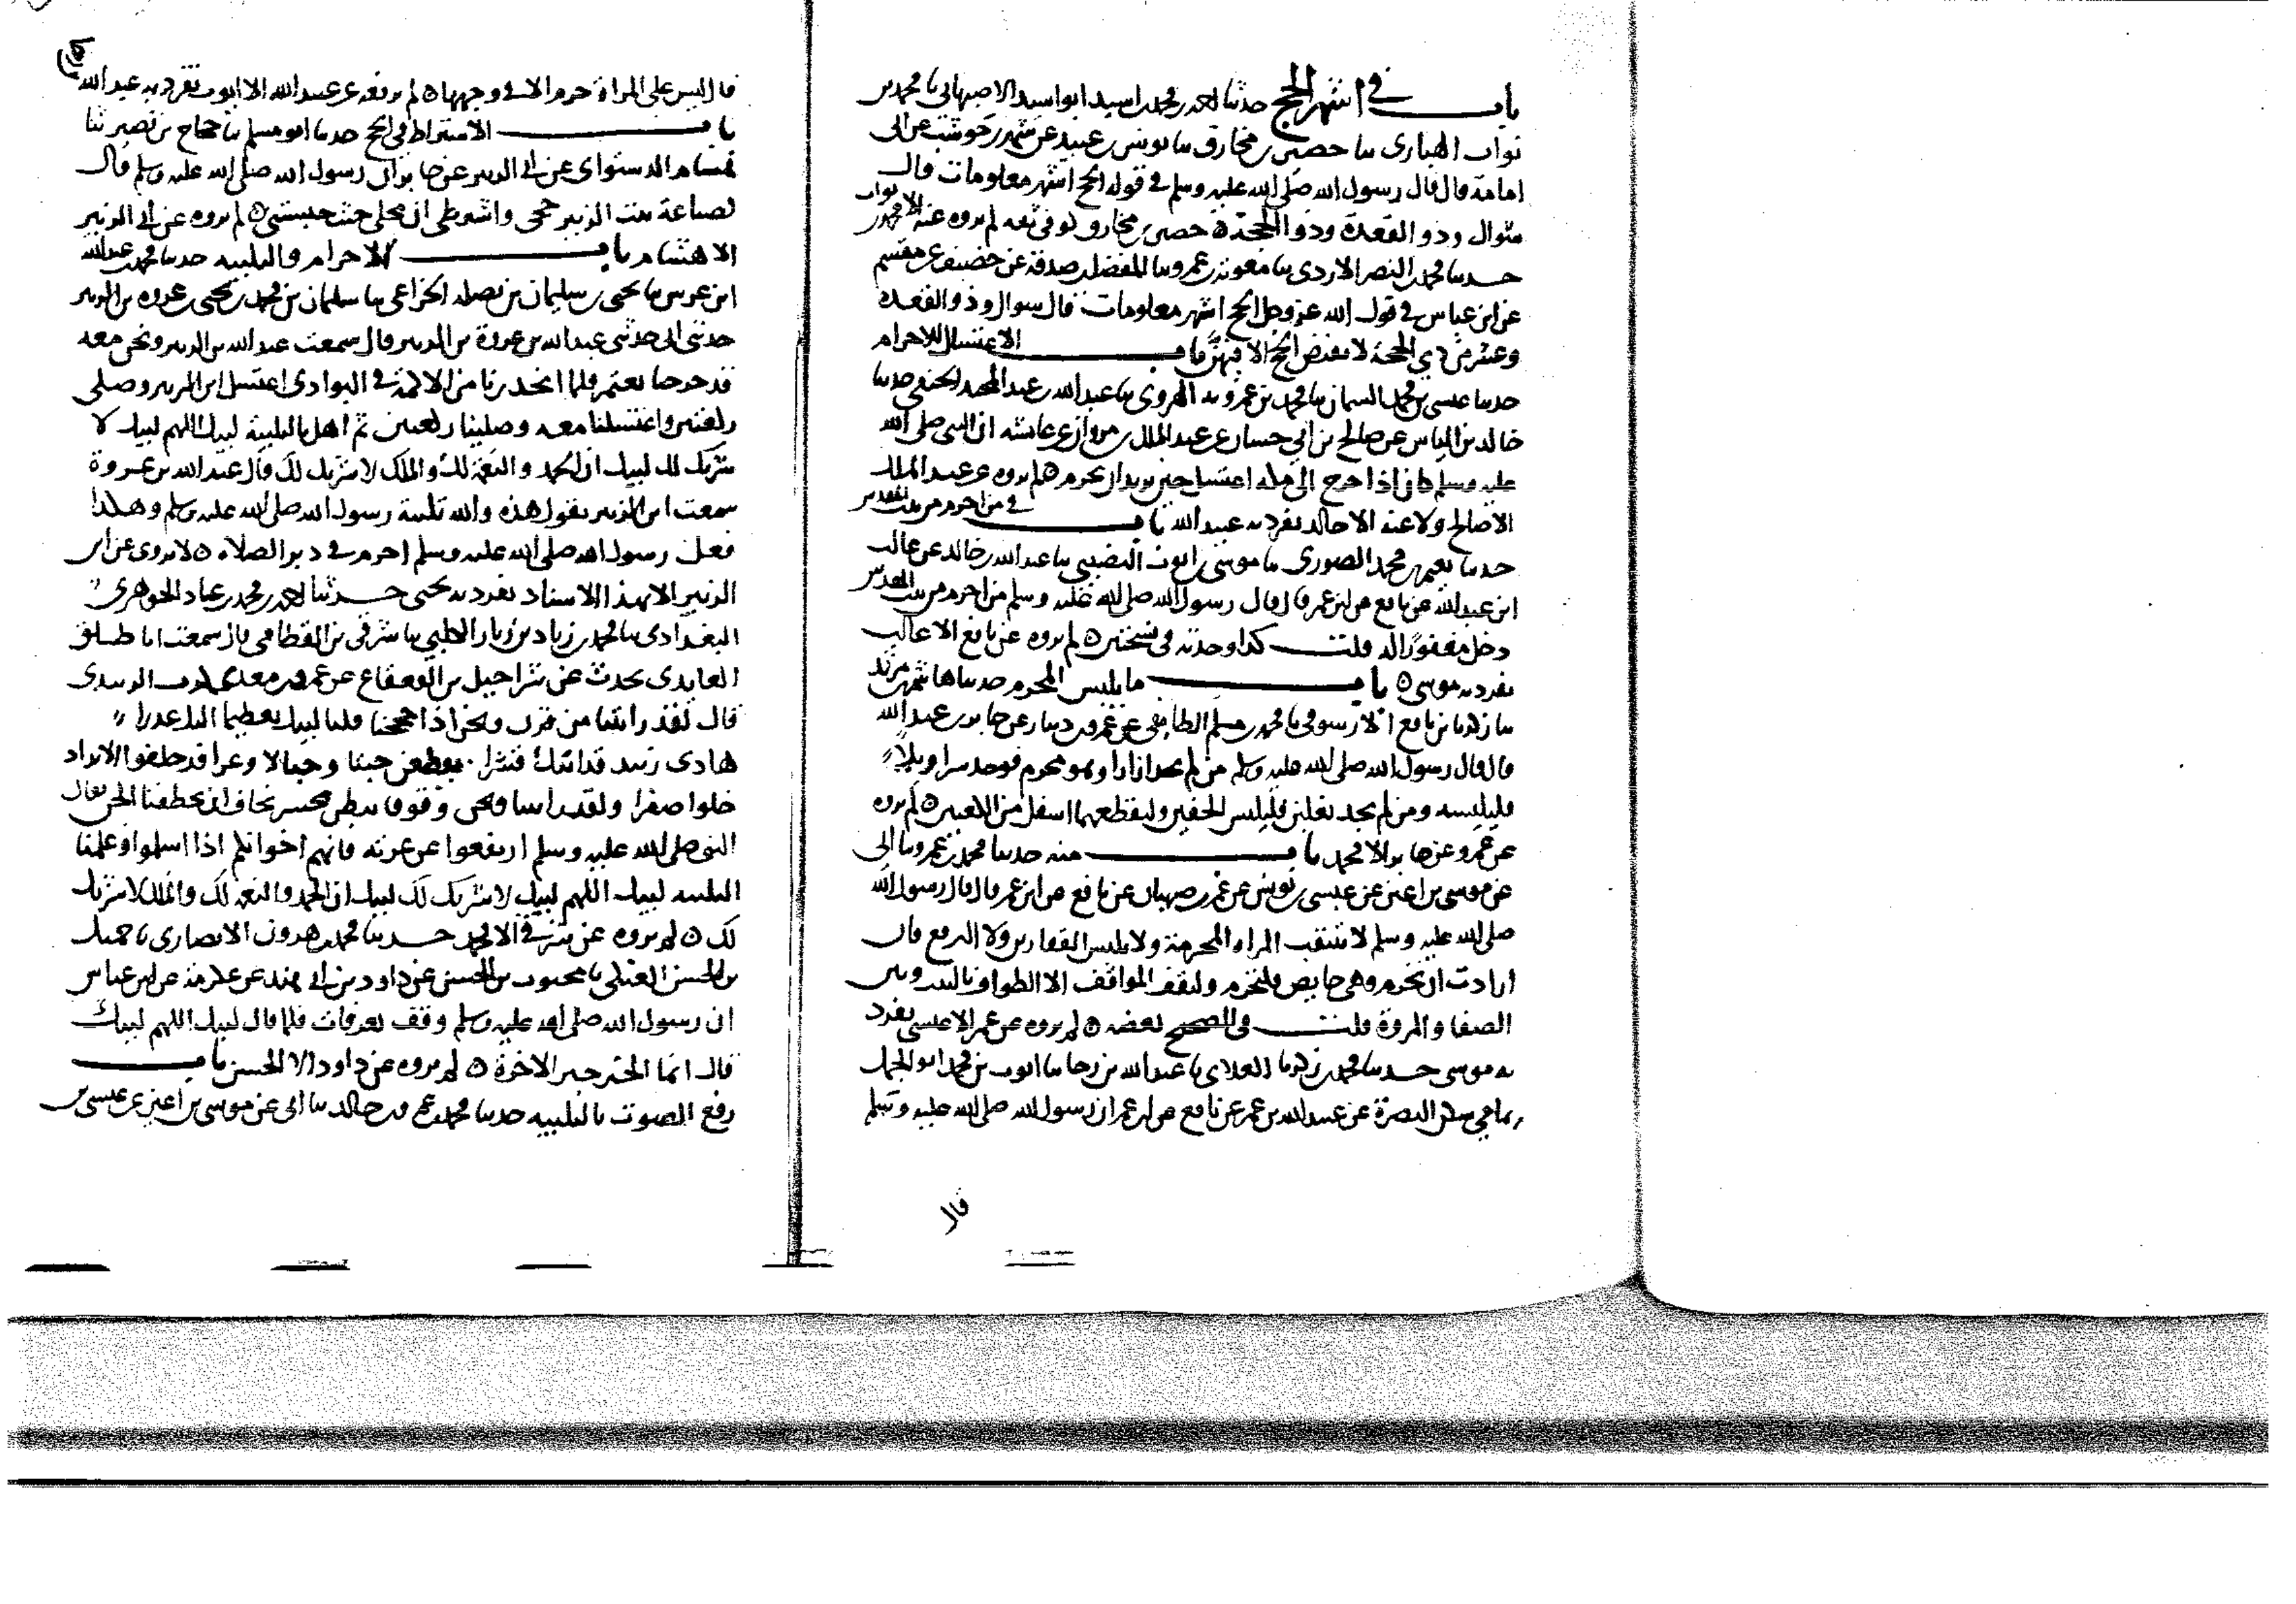 باب في أشهر الحج حدثنا احمد بن محمد بن اسيد ابو اسيد الاصبهاني نا محمد بن
ثواب الهباري نا حصين بن مخارق نا يونس بن عبيد عن شهر بن حوشب عن ابي
امامة قال قال رسول الله صلى الله عليه وسلم في قوله الحج اشهر معلومات قال
شوال وذو القعدة وذو الحجة ه حصين بن مخارق كوفي ثقه لم يروه عنه الا محمد بن ثواب
حدثنا محمد بن النضر الازدي نا معوية بن عمرو نا المفضل بن صدقة عن خصيف عن مقسم
عن ابن عباس في قول الله عز وجل الحج اشهر معلومات قال شوال وذو القعدة
وعشر من ذي الحجة لا يفرض الحج الا فيهن باب الاغتسال للاحرام
حدثنا عيسى بن محمد السمسار نا محمد بن عمرويه الهروي نا عبيد الله بن عبد المجيد الحنفي حدثنا
خالد بن الياس عن صالح بن ابي حسان عن عبد الملك بن مروان عن عائشه ان النبي صلى الله
عليه وسلم كان اذا خرج الى مكة اغتسل حين يريد ان يحرم ه لم يروه عن عبد الملك
الا صالح ولا عنه الا خالد تفرد به عبيد الله باب في من احرم من بيت المقدس
حدثنا نعيم بن محمد الصوري نا موسى بن ايوب النصيبي نا عبد الله بن خالد عن غالب
ابن عبيد الله عن نافع عن ابن عمر قال قال رسول الله صلى الله عليه وسلم من احرم من بيت المقدس
دخل مغفورا له قلت كذا وجدته في نسختين ه لم يروه عن نافع الا غالب
تفرد به موسى ه باب ما يلبس المحرم حدثنا هاشم بن مرثد
نا زكريا بن نافع الارسوفي نا محمد بن مسلم الطائفي عن عمرو بن دينار عن جابر بن عبد الله
قال قال رسول الله صلى الله عليه وسلم من لم يجد ازارا وهو محرم فوجد سراويلا
فليلبسه ومن لم يجد نعلين فليلبس الخفين وليقطعهما اسفل من الكعبين ه لم يروه
عن عمرو عن جابر الا محمد باب منه حدثنا محمد بن عمرو نا ابي
عن موسى بن اعين عن عيسى بن يونس عن عمر بن صهبان عن نافع عن ابن عمر قال قال رسول الله
صلى الله عليه وسلم لا تنتقب المراه المحرمة ولا تلبس القفازين ولا البرقع فان
ارادت ان تحرم وهي حايض فلتحرم ولتقف المواقف الا الطواف بالبيت وبين
الصفا والمروة قلت في الصحيح بعضه ه لم يروه عن عمر الا عيسى تفرد
به موسى حدثنا محمد بن زكريا الغلابي نا عبد الله بن رجا نا ايوب بن محمد ابو الجمل
يمامي سكن البصرة عن عبيد الله بن عمر عن نافع عن ابن عمر ان رسول الله صلى الله عليه وسلم
قال
قال ليس على المراة حرم الا في وجهها ه لم يرفعه عن عبيد الله الا ايوب تفرد به عبد الله
باب الاشتراط في الحج حدثنا ابو مسلم نا حجاج بن نصير ثنا
هشام الدستوائي عن ابي الزبير عن جابر ان رسول الله صلى الله عليه وسلم قال
لضباعة بنت الزبير حجي واشترطي ان محلي حيث حبستني ه لم يروه عن ابي الزبير
الا هشام باب الاحرام والتلبيه حدثنا محمد بن عبد الله
ابن عرس نا يحيى بن سليمان بن نضلة الخزاعي نا سليمان بن محمد بن يحيى بن عروة بن الزبير
حدثني ابي حدثني عبد الله بن عروة بن الزبير قال سمعت عبد الله بن الزبير ونحن معه
قد خرجنا نعتمر فلما انحدرنا من الاكمة في الوادي اغتسل ابن الزبير وصلى
ركعتين واغتسلنا معه وصلينا ركعتين ثم اهل بالتلبية لبيك اللهم لبيك لا
شريك لك لبيك ان الحمد والنعمة لك والملك لا شريك لك قال عبد الله بن عروة
سمعت ابن الزبير يقول هذه والله تلبية رسول الله صلى الله عليه وسلم وهكذا
فعل رسول الله صلى الله عليه وسلم احرم في دبر الصلاه ه لا يروى عن ابن
الزبير الا بهذا الاسناد تفرد به يحيى حدثنا احمد بن محمد بن عباد الجوهري
البغدادي نا محمد بن زياد بن زبار الكلبي نا شرقي بن القطامي قال سمعت ابا طلق
العايذي يحدث عن شراحيل بن القعقاع عن عمرو بن معدي كرب الزبيدي
قال لقد رايتنا من قرن ونحن اذا حججنا قلنا لبيك تعظيما اليك عذرا
هذي زبيد قد اتتك قسرا يقطعن خبتا وجبالا وعرا قد خلفوا الانداد
خلوا صفرا ولقد راينا ونحن وقوفا ببطن محسر نخاف ان تخطفنا الجن فقال
النبي صلى الله عليه وسلم ارتفعوا عن عرنه فانهم اخوانكم اذا اسلموا وعلمنا
التلبيه لبيك اللهم لبيك لا شريك لك لبيك ان الحمد والنعمه لك والملك لا شريك
لك ه لم يروه عن شرقي الا محمد حدثنا محمد بن هرون الانصاري نا جميل
بن الحسن العتكي نا محبوب بن الحسن عن داود بن ابي هند عن عكرمة عن ابن عباس
ان رسول الله صلى الله عليه وسلم وقف بعرفات فلما قال لبيك اللهم لبيك
قال انما الخير خير الاخرة ه لم يروه عن داود الا محبوب باب
رفع الصوت بالتلبيه حدثنا محمد بن عمرو بن خالد نا ابي عن موسى بن اعين عن عيسى بن